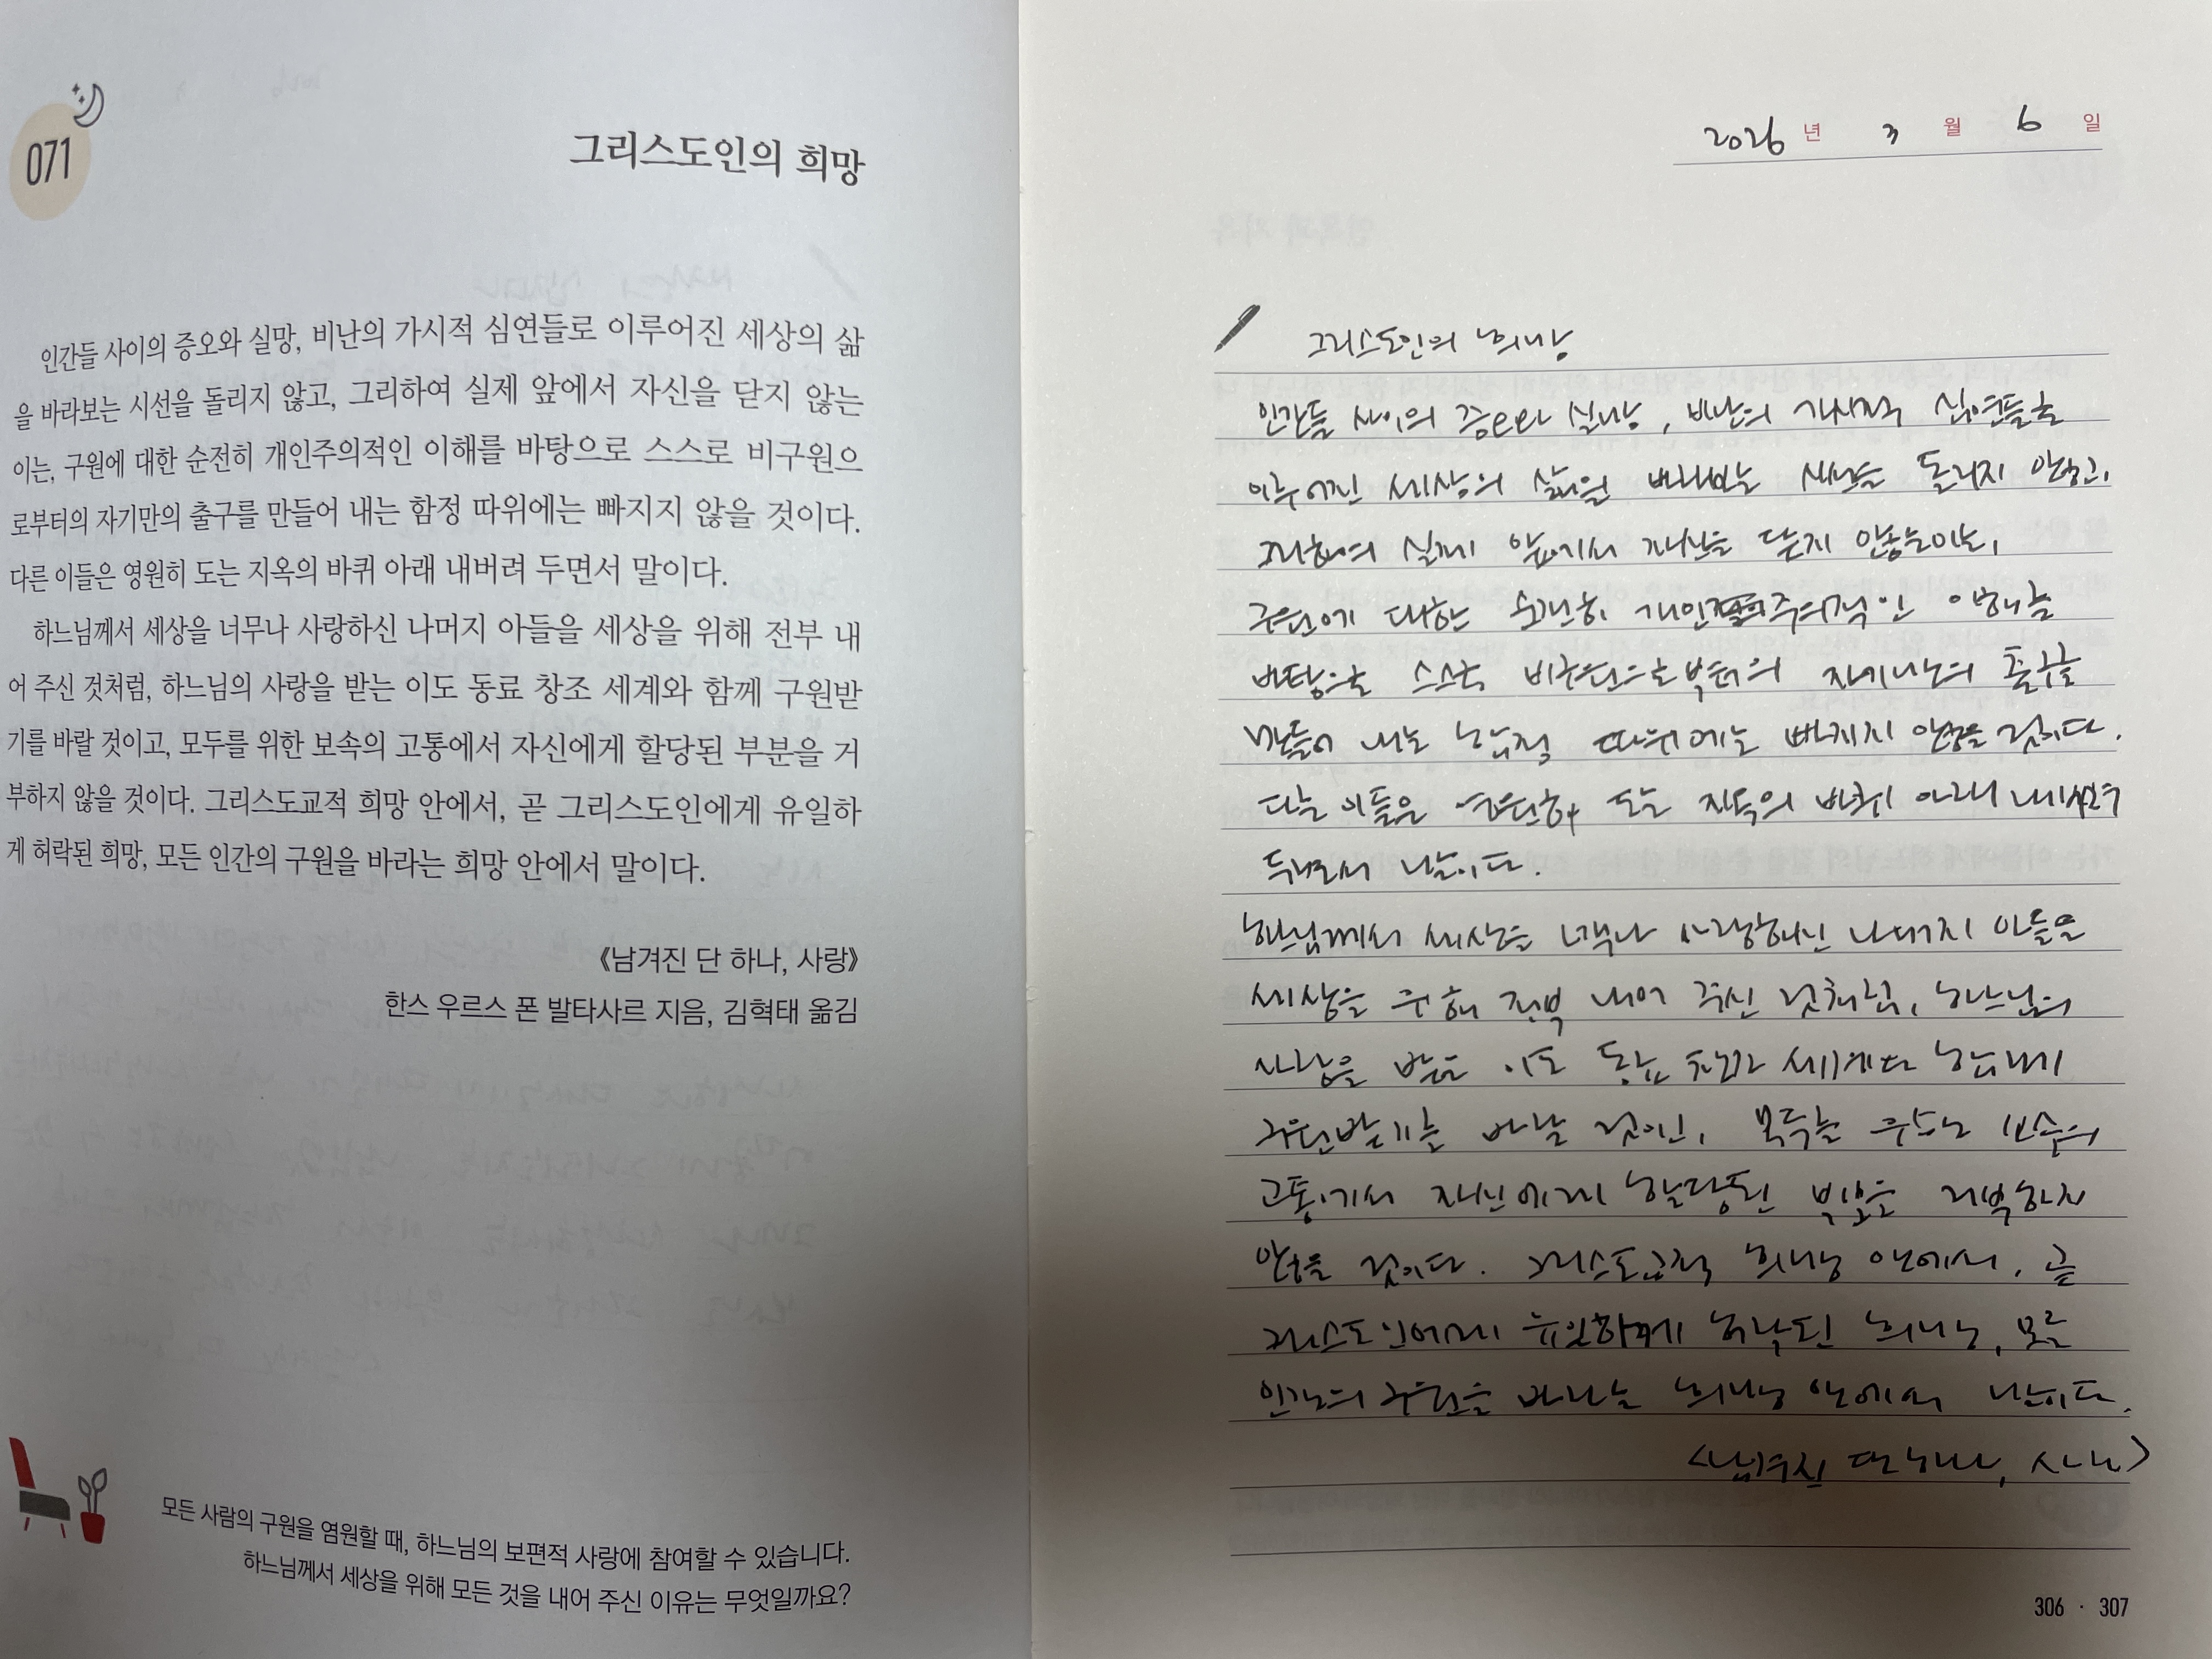 071
그리스도인의 희망
인간들 사이의 증오와 실망, 비난의 가시적 심연들로 이루어진 세상의 삶
을 바라보는 시선을 돌리지 않고, 그리하여 실제 앞에서 자신을 닫지 않는
이는, 구원에 대한 순전히 개인주의적인 이해를 바탕으로 스스로 비구원으
로부터의 자기만의 출구를 만들어 내는 함정 따위에는 빠지지 않을 것이다.
다른 이들은 영원히 도는 지옥의 바퀴 아래 내버려 두면서 말이다.
하느님께서 세상을 너무나 사랑하신 나머지 아들을 세상을 위해 전부 내
어 주신 것처럼, 하느님의 사랑을 받는 이도 동료 창조 세계와 함께 구원받
기를 바랄 것이고, 모두를 위한 보속의 고통에서 자신에게 할당된 부분을 거
부하지 않을 것이다. 그리스도교적 희망 안에서, 곧 그리스도인에게 유일하
게 허락된 희망, 모든 인간의 구원을 바라는 희망 안에서 말이다.
《남겨진 단 하나, 사랑》
한스 우르스 폰 발타사르 지음, 김혁태 옮김
모든 사람의 구원을 염원할 때, 하느님의 보편적 사랑에 참여할 수 있습니다.
하느님께서 세상을 위해 모든 것을 내어 주신 이유는 무엇일까요?
2026년 3월 6일
그리스도인의 희망
인간들 사이의 증오와 실망, 비난의 가시적 심연들로
이루어진 세상의 삶을 바라보는 시선을 돌리지 않고,
그리하여 실제 앞에서 자신을 닫지 않는이는,
구원에 대한 순전히 개인주의적인 이해를
바탕으로 스스로 비구원으로부터의 자기만의 출구를
만들어 내는 함정 따위에는 빠지지 않을 것이다.
다른 이들은 영원히 도는 지옥의 바퀴 아래 내버려
두면서 말이다.
하느님께서 세상을 너무나 사랑하신 나머지 아들을
세상을 위해 전부 내어 주신 것처럼, 하느님의
사랑을 받는 이도 동료 창조 세계와 함께
구원받기를 바랄 것이고, 모두를 위한 보속의
고통에서 자신에게 할당된 부분을 거부하지
않을 것이다. 그리스도교적 희망 안에서, 곧
그리스도인에게 유일하게 허락된 희망, 모든
인간의 구원을 바라는 희망 안에서 말이다.
<남겨진 단 하나, 사랑>
306 · 307